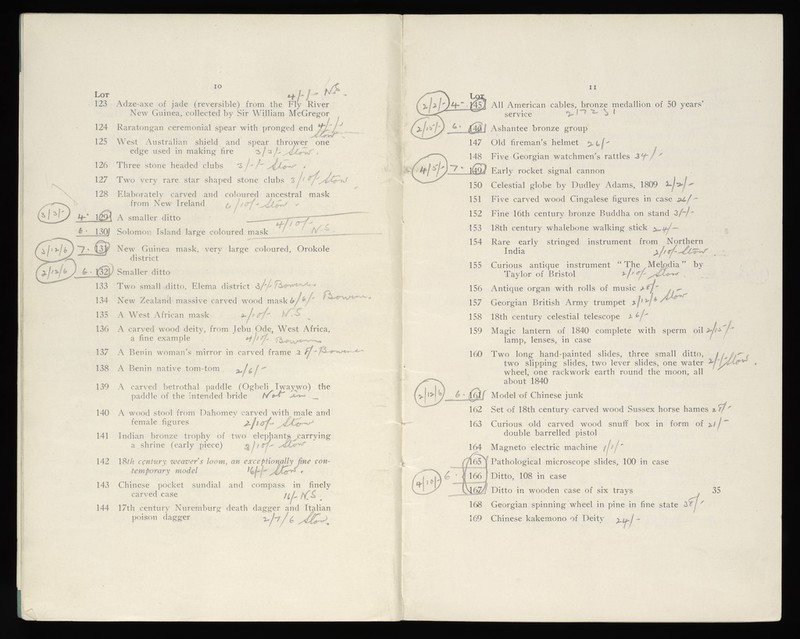 10
Lot
4/-/- N.S.
123 Adze-axe of jade (reversible) from the Fly River
New Guinea, collected by Sir William McGregor
124 Raratongan ceremonial spear with pronged end
Stow
125 West Australian shield and spear thrower one
edge used in making fire 3/3/- Stow.
126 Three stone headed clubs 3/-/- Stow.
127 Two very rare star shaped stone clubs 3/10/- Stow
128 Elaborately carved and coloured ancestral mask
from New Ireland 6/10/- Stow
2/2/- 4- 129 A smaller ditto
4/10/-
6- 130 Solomon Island large coloured mask N.S.
2/12/6 7- 131 New Guinea mask, very large coloured, Orokole
district
2/12/6 6- 132 Smaller ditto
133 Two small ditto, Elema district 3/-/- Bowen
134 New Zealand massive carved wood mask 6/6/- Bowen
135 A West African mask 2/10/- N.S.
136 A carved wood deity, from Jebu Ode, West Africa,
a fine example 4/10/- Bowen
137 A Benin woman's mirror in carved frame
138 A Benin native tom-tom 2/6/-
139 A carved betrothal paddle (Ogbeli Iwaywo) the
paddle of the intended bride Not in
140 A wood stool from Dahomey carved with male and
female figures 2/10/- Stow
141 Indian bronze trophy of two elephants carrying
a shrine (early piece) 3/10/- Stow
142 18th century weaver's loom, an exceptionally fine con-
temporary model 16/-/- Stow.
143 Chinese pocket sundial and compass in finely
carved case 16/- N.S.
144 17th century Nuremburg death dagger and Italian
poison dagger 2/7/6 Stow.
11
Lot
2/2/- 4- 145 All American cables, bronze medallion of 50 years'
service 217231
2/15/- 6- 146 Ashantee bronze group
147 Old fireman's helmet 26/-
148 Five Georgian watchmen's rattles
4/5/- 7- 149 Early rocket signal cannon
150 Celestial globe by Dudley Adams, 1809 2/2/-
151 Five carved wood Cingalese figures in case 26/-
152 Fine 16th century bronze Buddha on stand 3/-/-
153 18th century whalebone walking stick 24/-
154 Rare early stringed instrument from Northern
India 3/10/- Stow
155 Curious antique instrument "The Melodia" by
Taylor of Bristol 2/10/- Stow
156 Antique organ with rolls of music 28/-
157 Georgian British Army trumpet 2/12/6 Stow
158 18th century celestial telescope 26/-
159 Magic lantern of 1840 complete with sperm oil 2/15/-
lamp, lenses, in case
160 Two long hand-painted slides, three small ditto,
two slipping slides, two lever slides, one water 2/-/- Stow.
wheel, one rackwork earth round the moon, all
about 1840
2/12/6 6- 161 Model of Chinese junk
162 Set of 18th century carved wood Sussex horse hames 25/-
163 Curious old carved wood snuff box in form of 21/-
double barrelled pistol
164 Magneto electric machine 1/1/-
165 Pathological microscope slides, 100 in case
4/10/- 6- 166 Ditto, 108 in case
167 Ditto in wooden case of six trays 35
168 Georgian spinning wheel in pine in fine state
169 Chinese kakemono of Deity 24/-